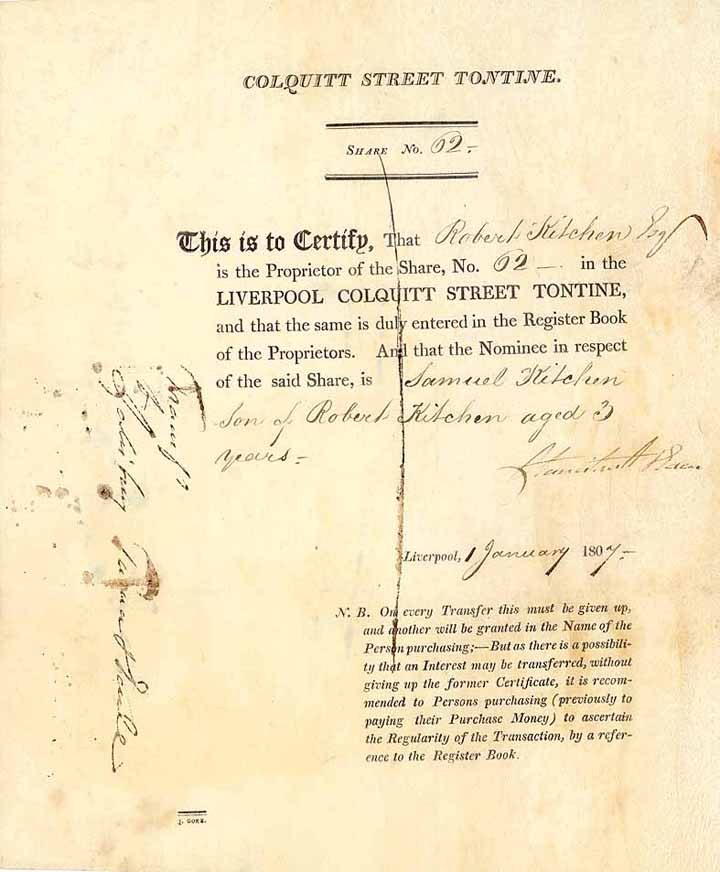 COLQUITT STREET TONTINE.
SHARE No. 62-
This is to Certify, That Robert Kitchen Esq
is the Proprietor of the Share, No. 62 — in the
LIVERPOOL COLQUITT STREET TONTINE,
and that the same is duly entered in the Register Book
of the Proprietors. And that the Nominee in respect
of the said Share, is Samuel Kitchen
Son of Robert Kitchen aged 3
years-
Liverpool, 1 January 1807-
N. B. On every Transfer this must be given up,
and another will be granted in the Name of the
Person purchasing;—But as there is a possibili-
ty that an Interest may be transferred, without
giving up the former Certificate, it is recom-
mended to Persons purchasing (previously to
paying their Purchase Money) to ascertain
the Regularity of the Transaction, by a refer-
ence to the Register Book.
J. GORE.